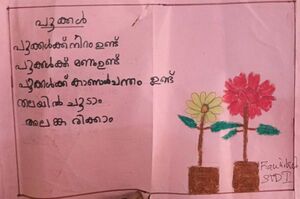 പൂക്കൾ
പൂക്കൾക്ക് നിറം ഉണ്ട്
പൂക്കൾക്ക് മണം ഉണ്ട്
പൂക്കൾക്ക് കാണാൻ ചന്തം ഉണ്ട്
തലയിൽ ചൂടാം
അലങ്കരിക്കാം
STD I